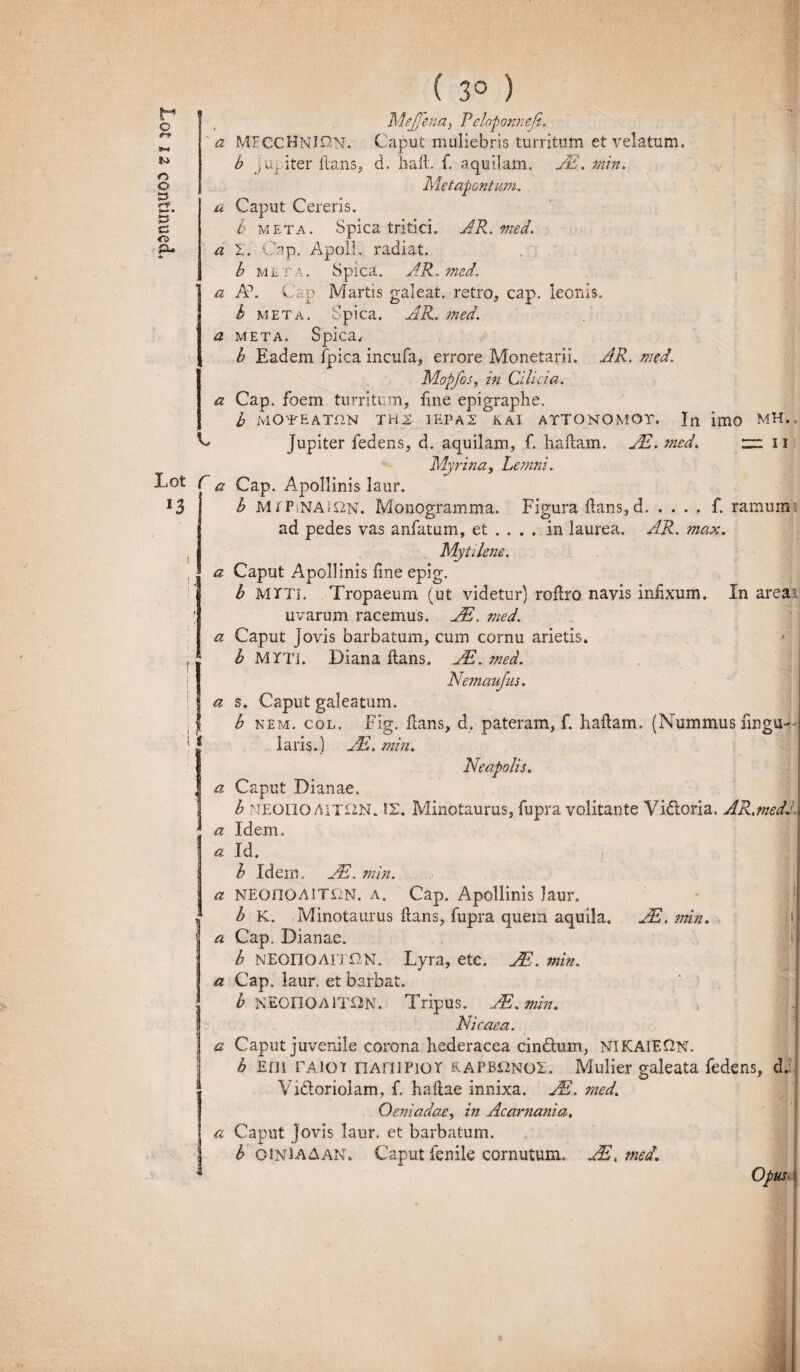 ( 30 )
Lot 12 continued.
Meſſena, Peloponneſi.
a ΜΕϹϹΗΝΙΩΝ. Caput muliebris turritum et velatum.
b Jupiter ſtans, d. haſt. ſ. aquilam. Æ. min.
Metapontum.
a Caput Cereris.
b META. Spica tritici. AR. med.
a Σ. Cap. Apoll. radiat.
b META. Spica. AR. med.
a Cap. Martis galeat. retro, cap. leonis.
b META. Spica. AR. med.
a META. Spica.
b Eadem ſpica incuſa, errore Monetarii. AR. med.
Mopſos, in Cilicia.
a Cap. foem turritum, ſine epigraphe.
b ΜΟΨΕΑΤΩΝ ΤΗΣ ΙΕΡΑΣ ΚΑΙ ΑΥΤΟΝΟΜΟΥ. In imo ΜΗ.
Jupiter ſedens, d. aquilam, ſ. haſtam. Æ. med. = 11
Myrina, Lemni.
Lot 13
a Cap. Apollinis laur.
b ΜΥΡΙΝΑΙΩΝ. Monogramma. Figura ſtans, d. . . . . ſ. ramum
ad pedes vas anſatum, et . . . . in laurea. AR. max.
Mytilene.
a Caput Apollinis ſine epig.
b ΜΥΤΙ. Tropaeum (ut videtur) roſtro navis infixum. In area
uvarum racemus. Æ. med.
a Caput Jovis barbatum, cum cornu arietis.
b ΜΥΤΙ. Diana ſtans. Æ. med.
Nemauſus.
a s. Caput galeatum.
b NEM. COL. Fig. ſtans, d. pateram, ſ. haſtam. (Nummus ſingu-
laris.) Æ. min.
Neapolis.
a Caput Dianae.
b ΝΕΟΠΟΛΙΤΩΝ. ΙΣ. Minotaurus, ſupra volitante Victoria. AR. med.
a Idem.
a Id.
b Idem. Æ. min.
a ΝΕΟΠΟΛΙΤΩΝ. Λ. Cap. Apollinis laur.
b K. Minotaurus ſtans, ſupra quem aquila. Æ. min.
a Cap. Dianae.
b ΝΕΟΠΟΛΙΤΩΝ. Lyra, etc. Æ. min.
a Cap. laur. et barbat.
b ΝΕΟΠΟΛΙΤΩΝ. Tripus. Æ. min.
Nicaea.
a Caput juvenile corona hederacea cinctum, ΝΙΚΑΙΕΩΝ.
b ΕΠΙ ΓΑΙΟΥ ΠΑΠΙΡΙΟΥ ΚΑΡΒΩΝΟΣ. Mulier galeata ſedens, d.
Victoriolam, ſ. haſtae innixa. Æ. med.
Oeniadae, in Acarnania.
a Caput Jovis laur. et barbatum.
b ΟΙΝΙΑΔΑΝ. Caput ſenile cornutum. Æ. med.
Opus